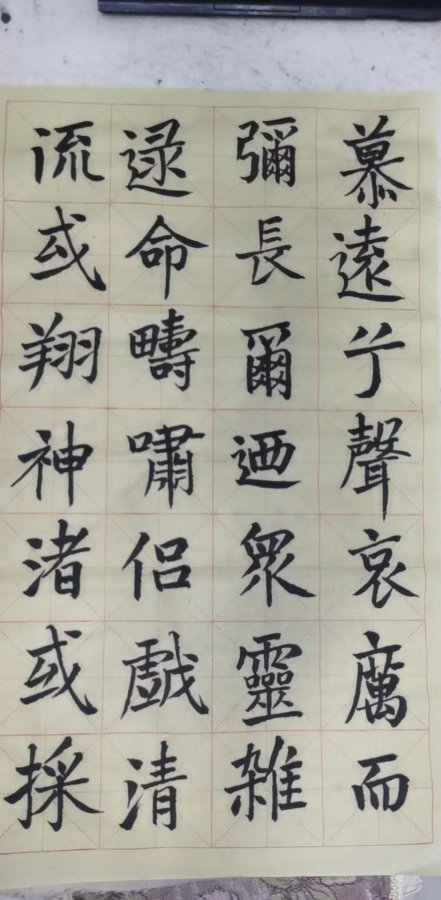 慕遠兮聲哀厲而
彌長爾迺眾靈雑
逯命疇嘯侶戯清
流或翔神渚或採